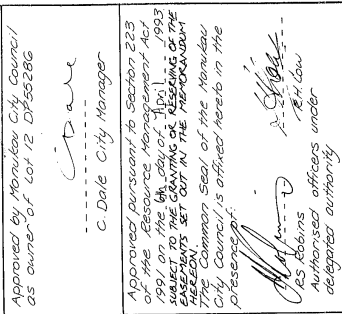 Approved by Manukau City Council
as owner of Lot 12 DP55286
C Dale
C. Dale City Manager
Approved pursuant to Section 223
of the Resource Management Act
1991 on the 6th day of April 1993
SUBJECT TO THE GRANTING OR RESERVING OF THE
EASEMENTS SET OUT IN THE MEMORANDUM
HEREON.
The Common Seal of the Manukau
City Council is affixed hereto in the
presence of:
RS Robins
R.H. Low
Authorised officers under
delegated authority